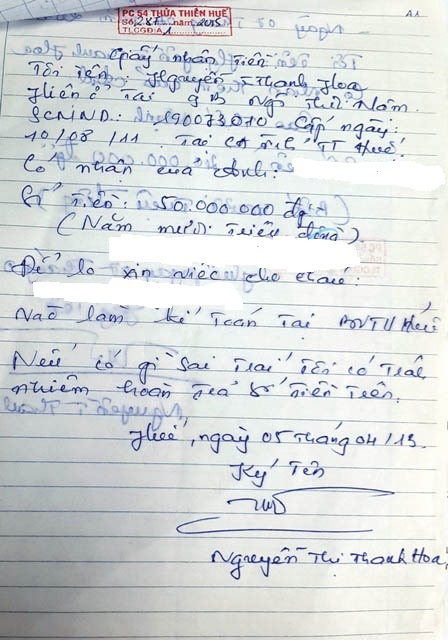 A1
PC 54 THỪA THIÊN HUẾ
Số: 287 năm 2015
TLCGĐ: A1
Giấy nhận tiền
Tôi tên Nguyễn T Thanh Hoa
Hiện ở Tại 9B Ngô Thời Nậm.
SCMND: 190073010 Cấp ngày:
10/08/11. Tại CA tỉnh TT Huế.
Có nhận của Anh:
Số tiền: 50.000.000 đg
(Năm mươi triệu đồng)
Để lo xin việc cho cháu:
Vào làm kế toán Tại BVTU Huế
Nếu có gì sai trái Tôi có trách
nhiệm hoàn trả số tiền Trên.
Huế, ngày 05 Tháng 04/13
Ký Tên
Nguyễn Thị Thanh Hoa